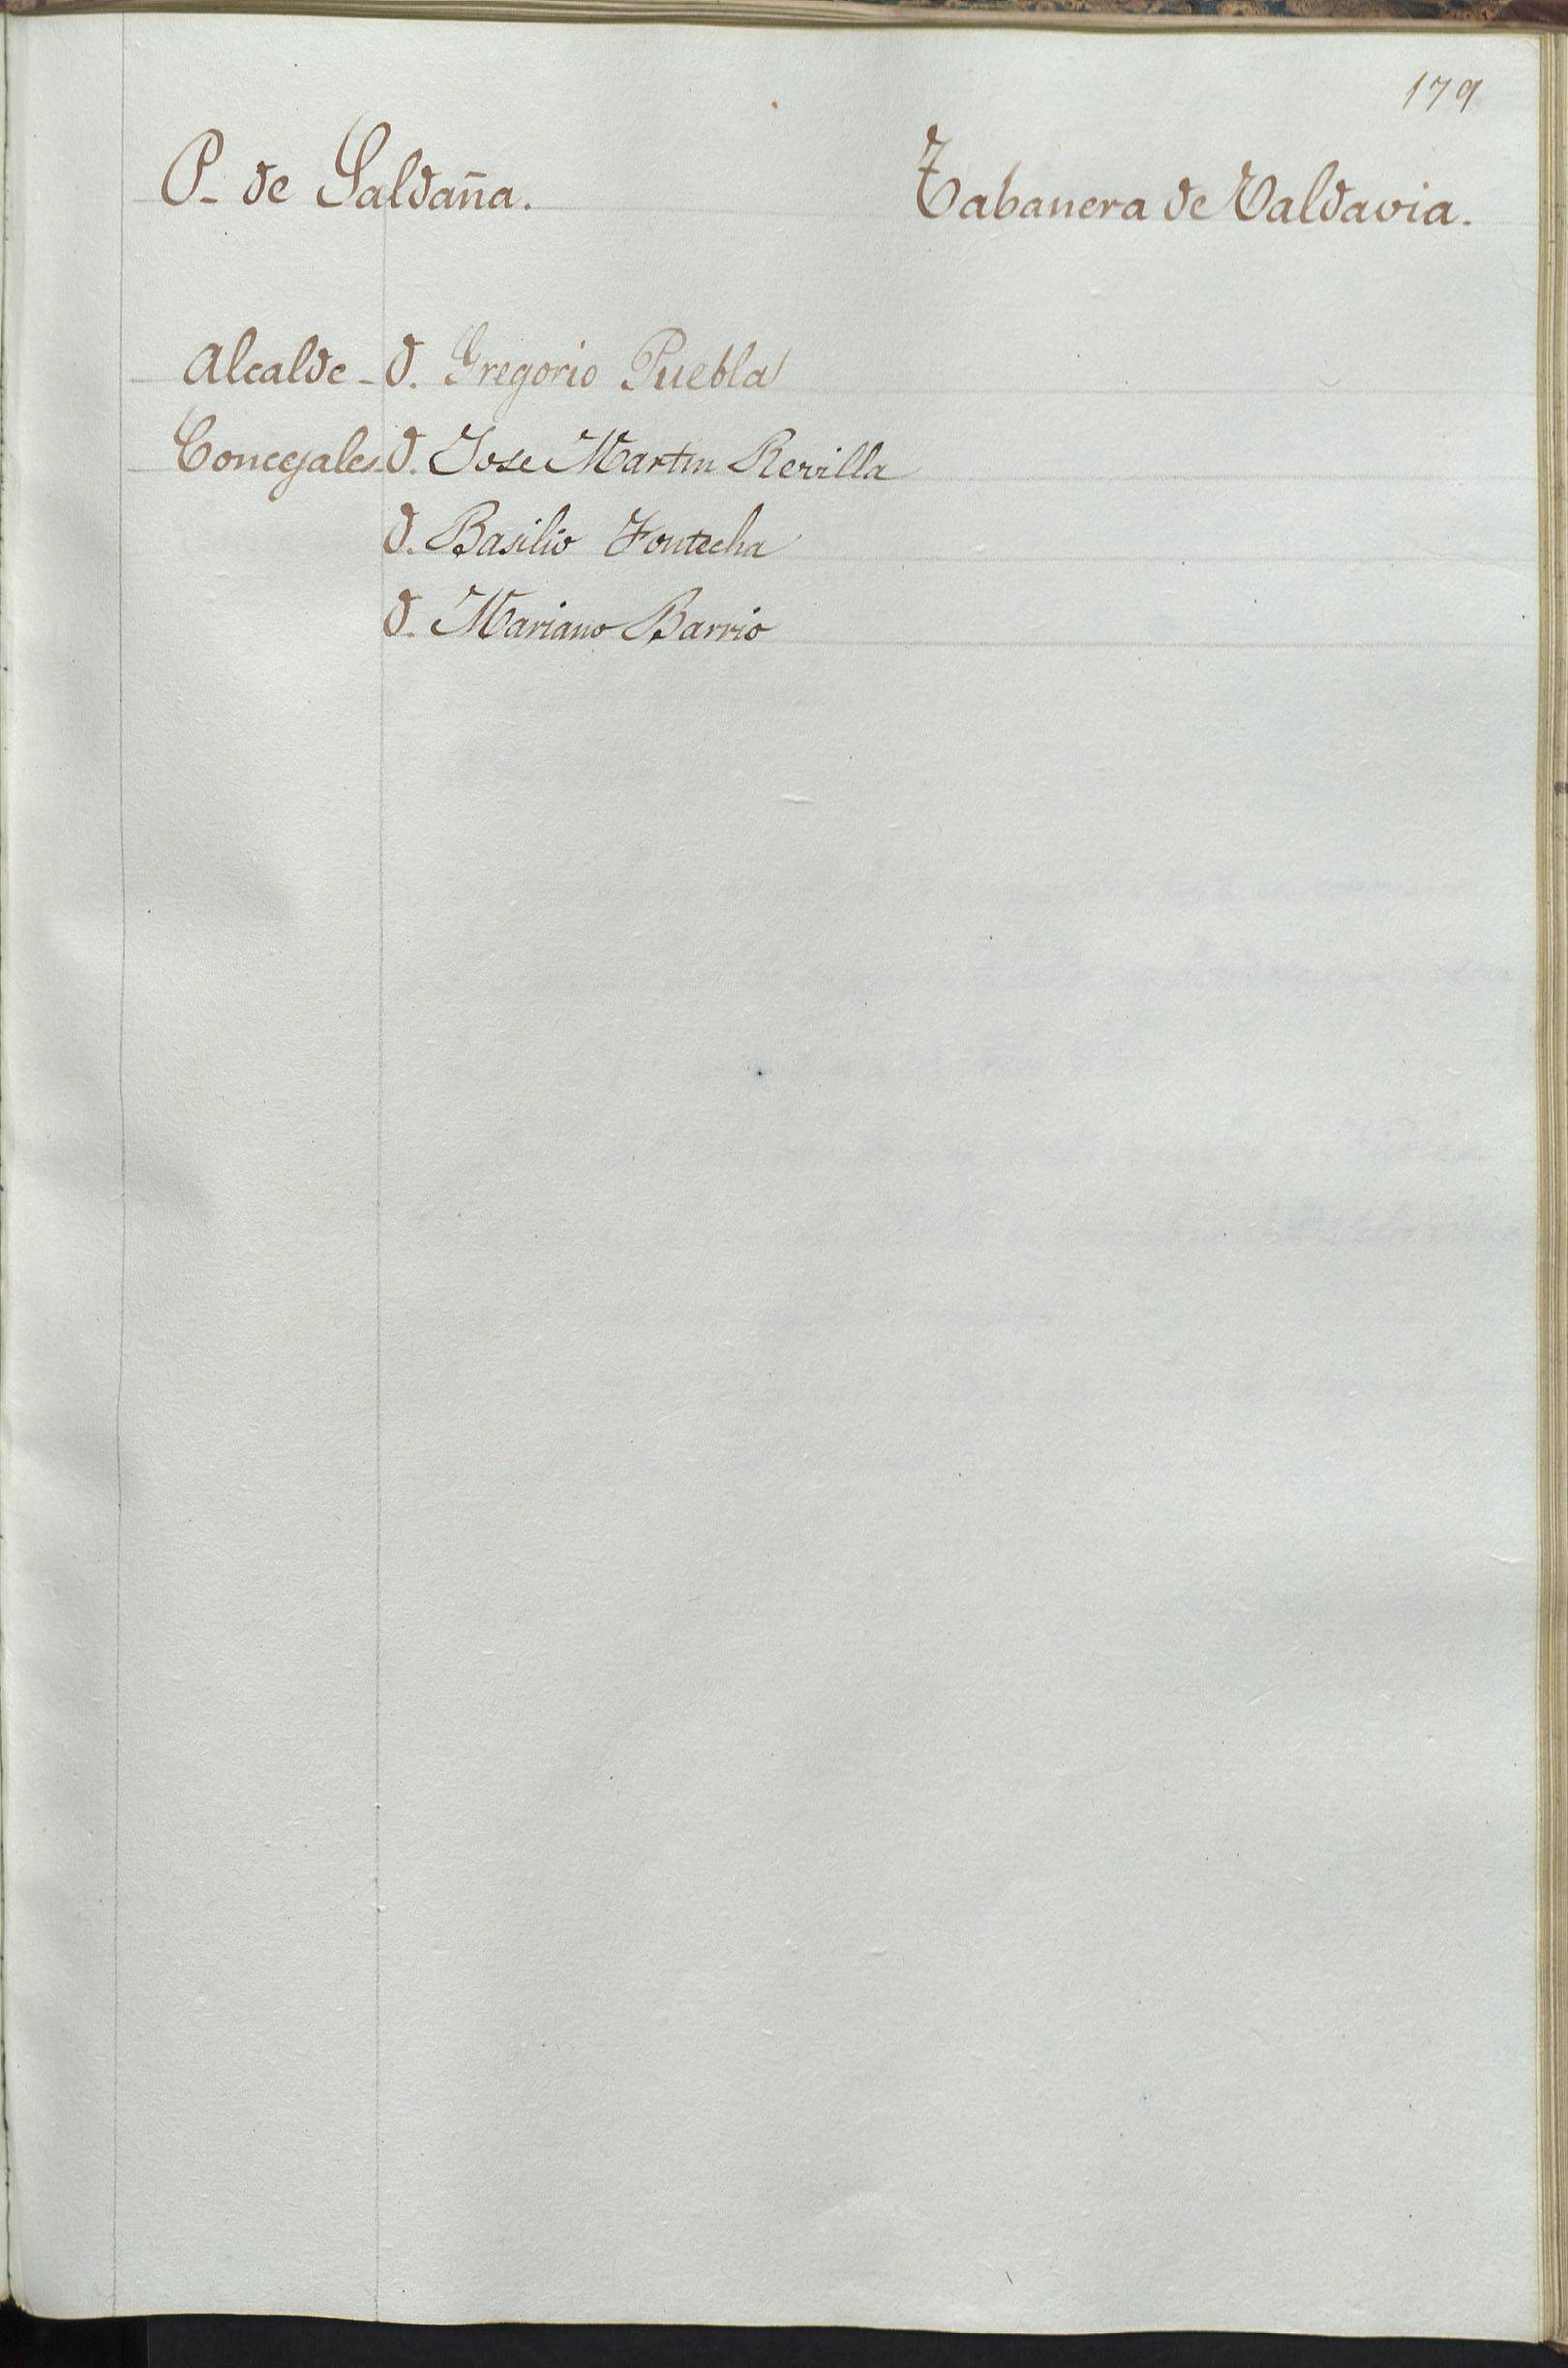 179
P. de Saldaña.
Tabanera de Valdavia.
Alcalde - D. Gregorio Puebla
Concejales D. Jose Martin Revilla
D. Basilio Fontecha
D. Mariano Barrio